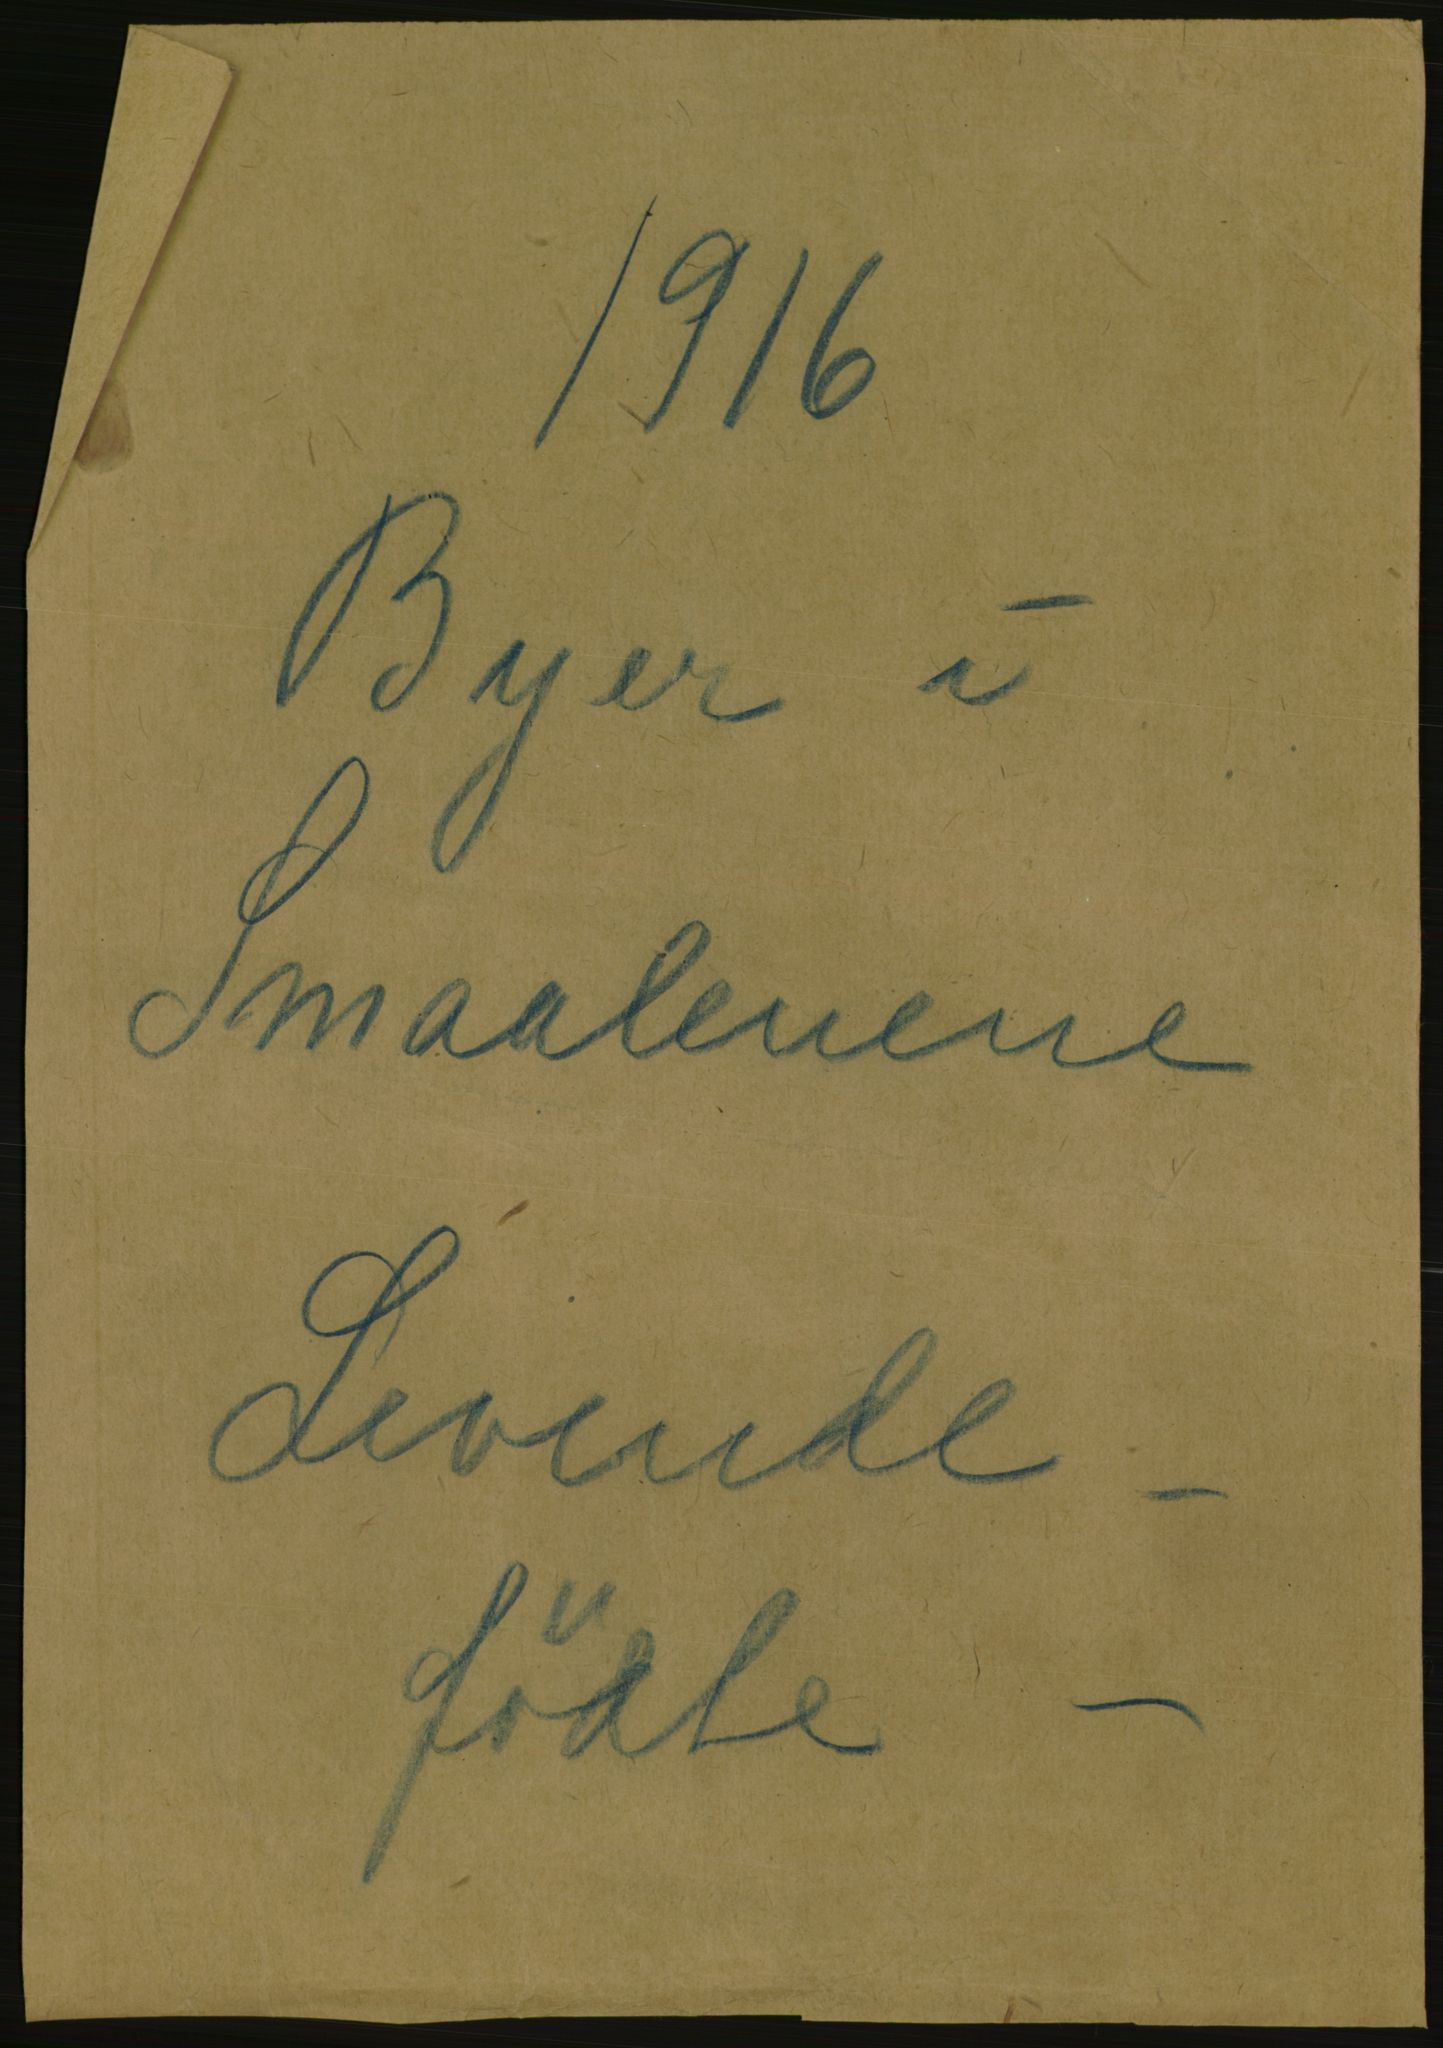 1916
Byer i
Smaalenene
Levende -
födte -